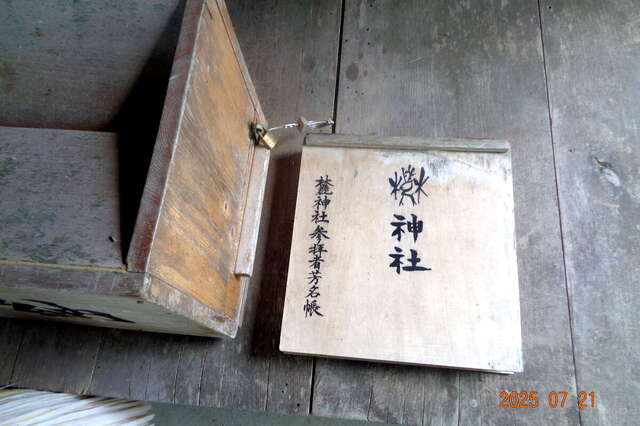 神社
麓神社参拝者芳名帳
2025 07 21